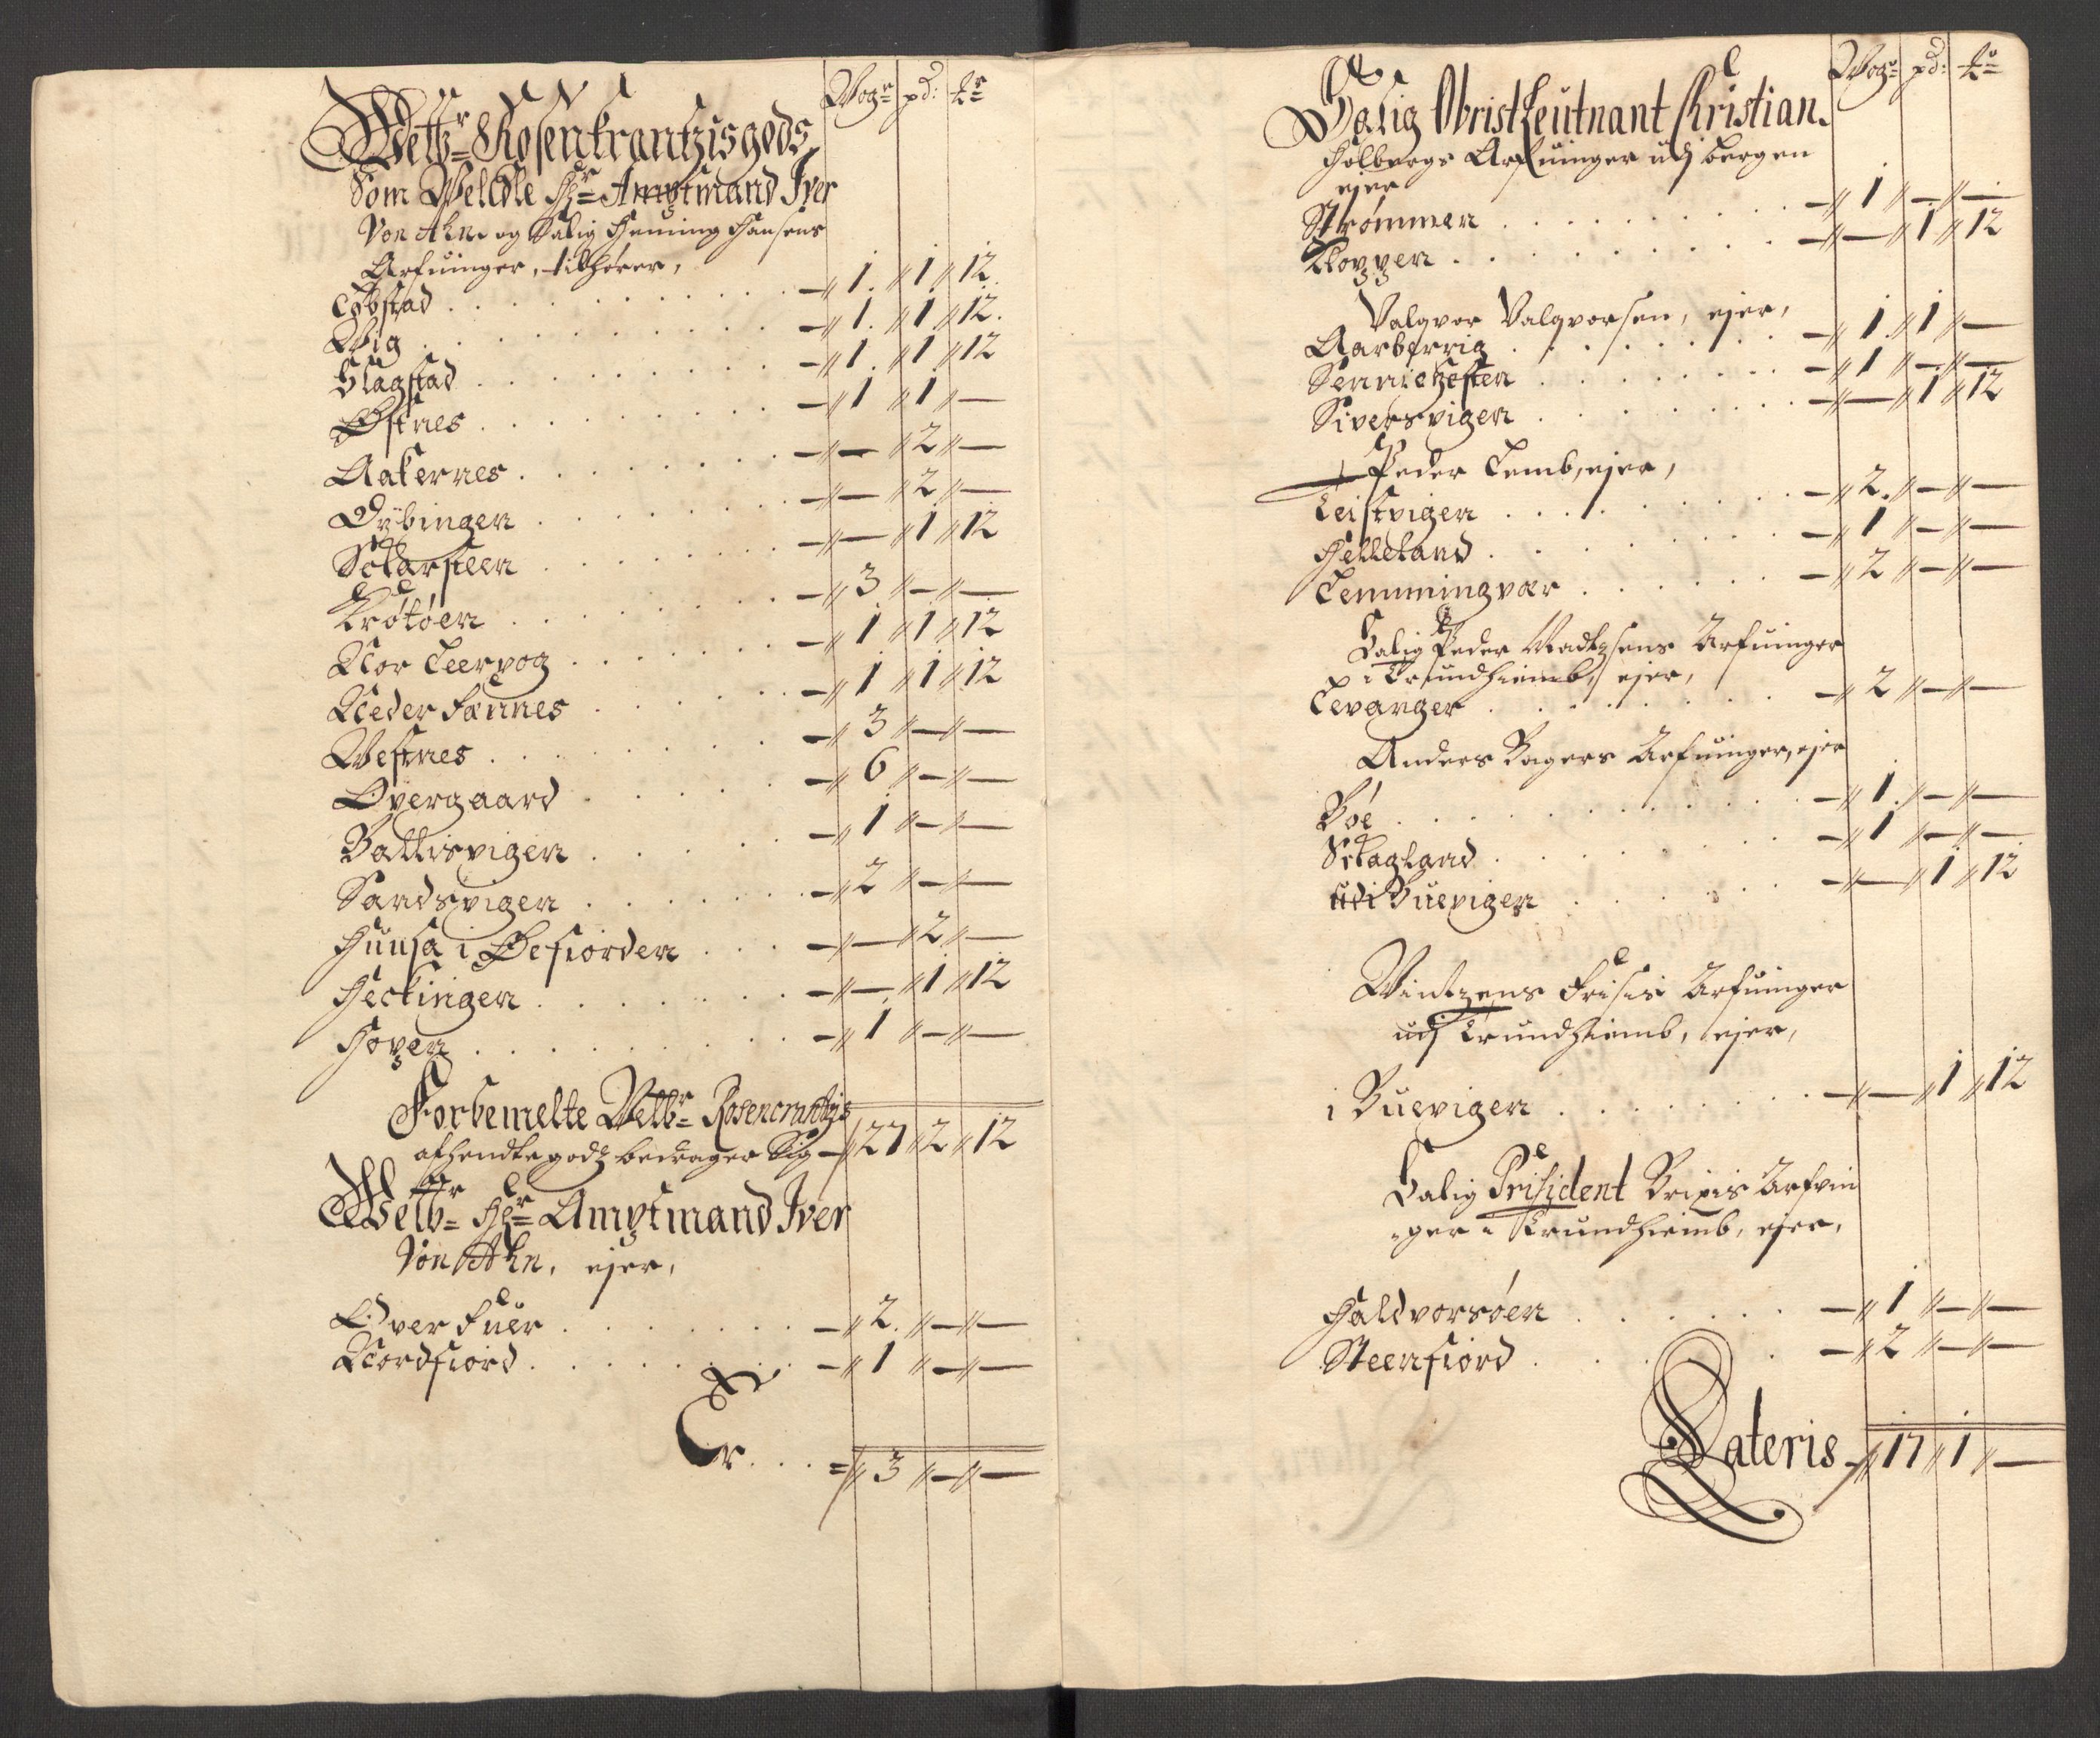 Wogr pd: tr
Welbr Rosenkrantzis gods
Som Weledle Hr Amptmand Iver
Von Ahn og Salig Henning Hansens
Arfuinger, tilhører,
Løbstad . . . . 1. 1 12
Wig . . . . 1. 1 12.
Slagstad . . . . 1. 1 12
Østnes . . . . 1 1 —
Aakernes . . . . — 2 —
Dybingen . . . . — 2 —
Skarsteen . . . . — 1 12
Krøtøen . . . . 3 — —
Nor Leervog . . . . 1 1 12
Neder Fænnes . . . . 1 1 12
Westnes . . . . 3 — —
Øvergaard . . . . 6 — —
Ballisvigen . . . . 1 — —
Sandsvigen . . . . 2 — —
Huusa i Øefiorden . . . — 2 —
Heckingen . . . . — 1 12
Hoven . . . . 1 — —
Forbemelte Welbr Rosencrantzis
afhendte godz bedrager Sig — 27 2 12
Welbr Hr Amptmand Iver
Von Ahn, ejer,
Over Fuer . . . . 2. — —
Nordfiord . . . . 1 — —
Er . . . 3 — —
Wogr pd: tr
Salig Obrist Leutnant Christian
Holbergs Arfuinger udj Bergen
ejer
Strømmen . . . . 1 — —
Kloppen . . . . — 1 12
Valgvor Valgvorsen, ejer,
Aarberrig . . . . 1. 1 —
Sennickesten . . . . 1 — —
Siversvigen . . . . — 1 12
Peder Lemb, ejer,
Leistvigen . . . . 2. — —
Helleland . . . . 1 — —
Lemmingvær . . . . 2 — —
Salig Peder Madtzsens Arfuinger
i Trundhiemb, ejer,
Levanger . . . . 2 — —
Anders Bagers Arfuinger, ejer
Bøe . . . . 1. — —
Skagland . . . . 1 — —
udi Buevigen . . . . — 1 12
Vintzens Frisis Arfuinger
udj Trundhiemb, ejer,
i Buevigen . . . . — 1 12
Salig Præsident Brixis Arfvin
ger i Trundhiemb, ejer,
Haldvorsøen . . . . 1 — —
Steenfiord . . . . 2 — —
Lateris 17 1 —